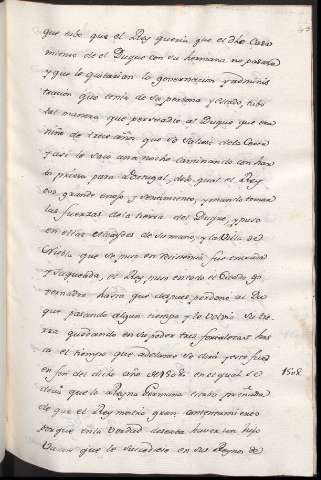 que supo que el Rey queria que el dho Casa
miento de el Duque con su hermana no passasse
y que le quitarian la gouernacion y adminis
tracion que tenia de su persona y estado tubo
tal manera que persuadio al Duque que era
niño de trece años que se saliese de la Corte
y assi le saco una noche caminando con har
ta priesa para Portugal, delo qual el Rey
vuo grande enojo y sentimiento, y mando tomar
las fuerzas de la tierra del Duque, y puso
en ellas Alcaydes de su mano, y la Villa de
Niebla que se puso en Resistencia fue entrada
y saqueada, el Rey puso en todo el Estado go
vernadores hasta que despues perdono al Du
que pasando algun tiempo y le volvio su tie
rra quedando en su poder tres fortalezas has
ta el tiempo que adelante se dira, y esto fue
en fin del dicho año de 1508 en el qual se
decia que la Reyna Germana estaba preñada
de que el Rey mostro gran contentamiento
porque en la verdad deseaba haver un hijo
Varon que le sucediese en sus Reynos de
1508